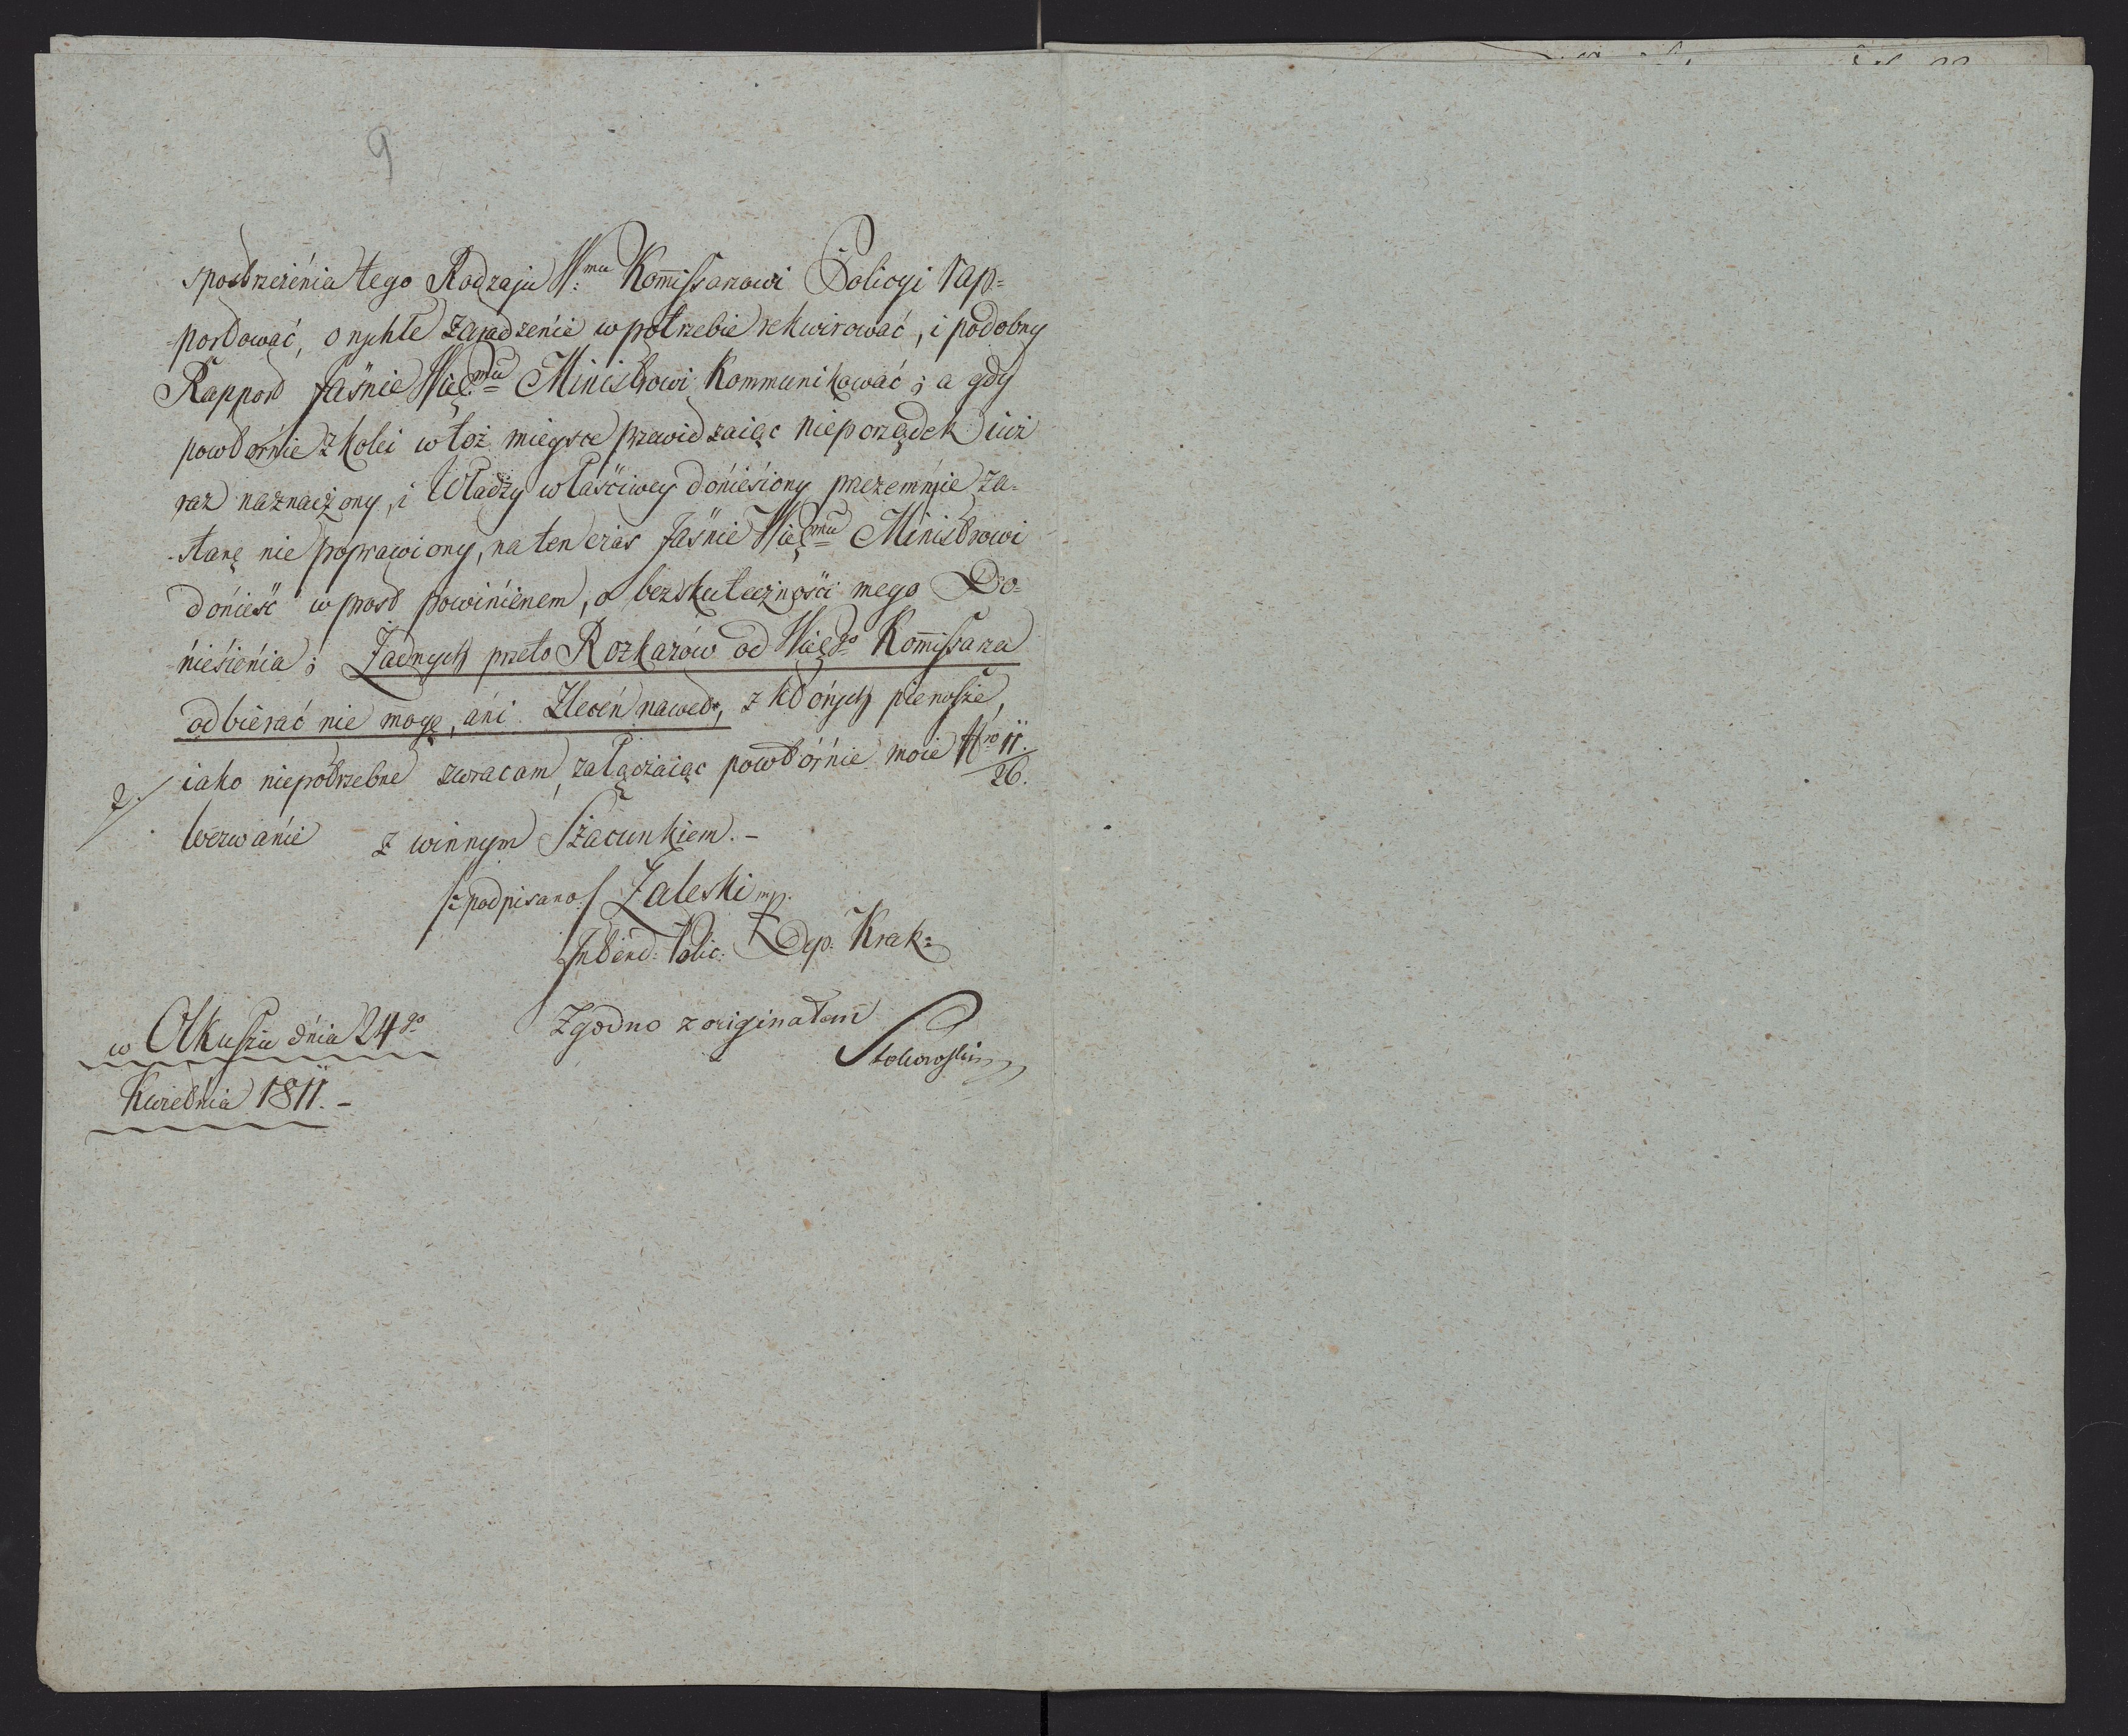 9
spostrzeżenia tego Rodzaju W:mu Kom̄issarzowi Policyi rap=
portować, o rychłe zaradzenie w potrzebie rekwirować, i podobny
Rapport Jaśnie Wielmu Ministrowi kommunikować; a gdy
powtórnie z kolei w toż mieysce przewidzaiąc nieporządek iuż
raz naznaczony, i Władzy właściwey doniesiony przezemnie za-
stanę nie poprawiony, na ten czas Jaśnie Wielmu Ministrowi
donieść wprost powinienem, o bezskuteczności mego Do=
niesienia; Żadnych przeto Rozkazów od Wielgo Kom̄issarza
odbierać nie mogę, ani Zleceń nawet, z których pierwsze,
iako niepotrzebne zwracam, załączaiąc powtórnie moie Nro 11./26.
2./
wezwanie z winnym Szacunkiem.-
/:podpisano/ Zaleski mp.
Intend: Polic: Dep: Krak:
w Olkuszu dnia 24go
Zgodno z originałem
Kwietnia 1811.-